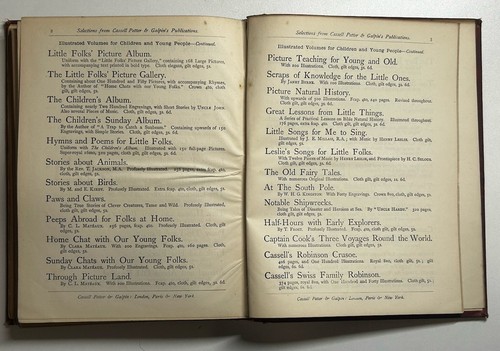 Selections from Cassell Petter & Galpin's Publications.
Illustrated Volumes for Children and Young People—Continued.
Little Folks' Picture Album.
Uniform with the "Little Folks' Picture Gallery," containing 168 Large Pictures,
with accompanying text printed in bold type. Cloth elegant, gilt edges, 5s.
The Little Folks' Picture Gallery.
Containing about One Hundred and Fifty Pictures, with accompanying Rhymes,
by the Author of "Home Chats with our Young Folks." Crown 4to, cloth
gilt, gilt edges, 5s.
The Children's Album.
Containing nearly Two Hundred Engravings, with Short Stories by Uncle John.
Also several Pieces of Music. Cloth, gilt edges,
The Children's Sunday Album.
By the Author of "A Trap to Catch a Sunbeam." Containing upwards of 150
Engravings, with Simple Stories. Cloth, gilt edges,
Hymns and Poems for Little Folks.
Uniform with The Children's Album. Illustrated with 150 full-page Pictures.
Super-royal 16mo, 300 pages, cloth gilt, gilt edges, 5s.
Stories about Animals.
By the Rev. T. Jackson, M.A. Profusely Illustrated. 256 pages, extra fcap. 4to,
cloth, gilt edges, 5s.
Stories about Birds.
By M. and E. Kirby. Profusely Illustrated. Extra fcap. 4to, cloth, gilt edges, 5s.
Paws and Claws.
Being True Stories of Clever Creatures, Tame and Wild. Profusely Illustrated,
cloth, gilt edges, 5s.
Peeps Abroad for Folks at Home.
By C. L. Matéaux. 256 pages, fcap. 4to. Profusely Illustrated. Cloth, gilt
edges, 5s.
Home Chat with Our Young Folks.
By Clara Matéaux. With 200 Engravings. Fcap. 4to, 260 pages. Cloth,
gilt edges, 5s.
Sunday Chats with Our Young Folks.
By Clara Matéaux. Profusely Illustrated. Cloth, gilt edges, 5s.
Through Picture Land.
By C. L. Matéaux. With 200 Illustrations. Fcap. 4to, cloth gilt, gilt edges,
Cassell Petter & Galpin: London, Paris & New York.
Selections from Cassell Petter & Galpin's Publications.
Illustrated Volumes for Children and Young People—Continued.
Picture Teaching for Young and Old.
With 200 Illustrations. Cloth gilt,
Scraps of Knowledge for the Little Ones.
By Janet Byrne. With 100 Illustrations. Cloth, gilt edges,
Picture Natural History.
With upwards of 500 Illustrations. Fcap. 4to, 240 pages. Revised throughout.
Cloth, gilt edges,
Great Lessons from Little Things.
A Series of Practical Lessons on Bible Natural History. Illustrated throughout,
176 pages, extra fcap. 4to, cloth gilt, gilt edges,
Little Songs for Me to Sing.
Illustrated by J. E. Millais, R.A.; with Music by Henry Leslie. Cloth, gilt
edges,
Leslie's Songs for Little Folks.
With Twelve Pieces of Music by Henry Leslie, and Frontispiece by H. C. Selous.
Cloth, gilt edges,
The Old Fairy Tales.
With numerous Original Illustrations. Cloth, gilt edges,
At The South Pole.
By W. H. G. Kingston. With Forty Engravings. Crown 8vo, cloth, gilt edges,
Notable Shipwrecks.
Being Tales of Disaster and Heroism at Sea. By "Uncle Hardy." 320 pages,
cloth gilt, gilt edges,
Half-Hours with Early Explorers.
By T. Frost. Profusely Illustrated. Fcap. 4to, cloth, gilt edges,
Captain Cook's Three Voyages Round the World.
With numerous Illustrations. Cloth, gilt edges,
Cassell's Robinson Crusoe.
pages, and One Hundred Illustrations. Royal 8vo, cloth,
gilt edges,
Cassell's Swiss Family Robinson.
pages, royal 8vo, with One Hundred and Forty Illustrations. Cloth gilt,
gilt edges,
Cassell Petter & Galpin: London, Paris & New York.